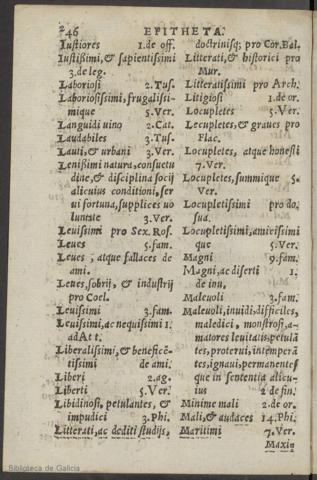 246 EPITHETA.
Iustiores 1.de off.
Iustißimi, & sapientissimi
3.de leg.
Laboriosi 2.Tus.
Laboriosissimi, frugalissi-
mique 5.Ver.
Languidi uino 2.Cat.
Laudabiles 3.Tus.
Lauti, & urbani 3.Ver.
Lenißimi natura, consuetu
dine, & disciplina socij
alicuius conditioni, ser
ui fortuna, supplices uo
luntate 3.Ver.
Leuissimi pro Sex. Ros.
Leues 5.fam.
Leues, atque fallaces de
ami.
Leues, sobrij, & industrij
pro Coel.
Leuissimi 3.fam.
Leuissimi, ac nequissimi 1.
ad Att.
Liberalissimi, & beneficē-
tissimi de ami.
Liberi 2.ag.
Liberti 5.Ver.
Libidinosi, petulantes, &
impudici 3.Phi.
Litterati, ac dediti studijs,
doctrinisq; pro Cor. Bal.
Litterati, & historici pro
Mur.
Litteratissimi pro Arch.
Litigiosi 1.de or.
Locupletes 5.Ver.
Locupletes, & graues pro
Flac.
Locupletes, atque honesti
7.Ver.
Locupletes, summique 5.
Ver.
Locupletissimi pro do.
sua.
Locupletissimi, amicissimi
que 5.Ver.
Magni 9.fam.
Magni, ac diserti 1.
de inu,
Maleuoli 3.fam.
Maleuoli, inuidi, difficiles,
maledici, monstrosi, a-
matores leuitatis, petulā
tes, proterui, intēmperā
tes, ignaui, permanentes
que in sententia alicu-
ius 2 de fin.
Minime mali 2.de or.
Mali, & audaces 14.Phi.
Maritimi 7.Ver.
Maxi-
Biblioteca de Galicia